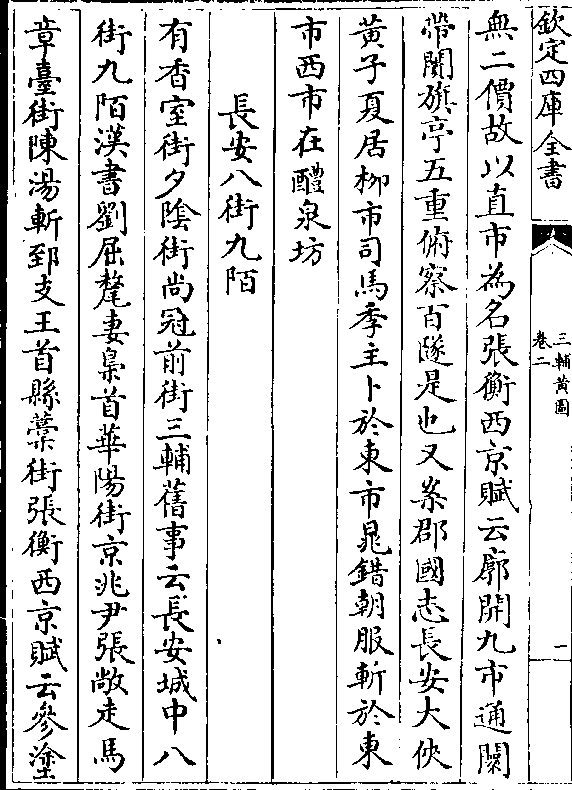 欽定四庫全書
三輔黃圖
卷二
一
無二價故以直市為名張衡西京賦云廓開九市通闤
帶闠旗亭五重俯察百隧是也又案郡國志長安大俠
黃子夏居柳市司馬季主卜於東市鼂錯朝服斬於東
市西市在醴泉坊
長安八街九陌
有香室街夕陰街尚冠前街三輔舊事云長安城中八
街九陌漢書劉屈氂妻梟首華陽街京兆尹張敞走馬
章臺街陳湯斬郅支王首縣藁街張衡西京賦云參塗